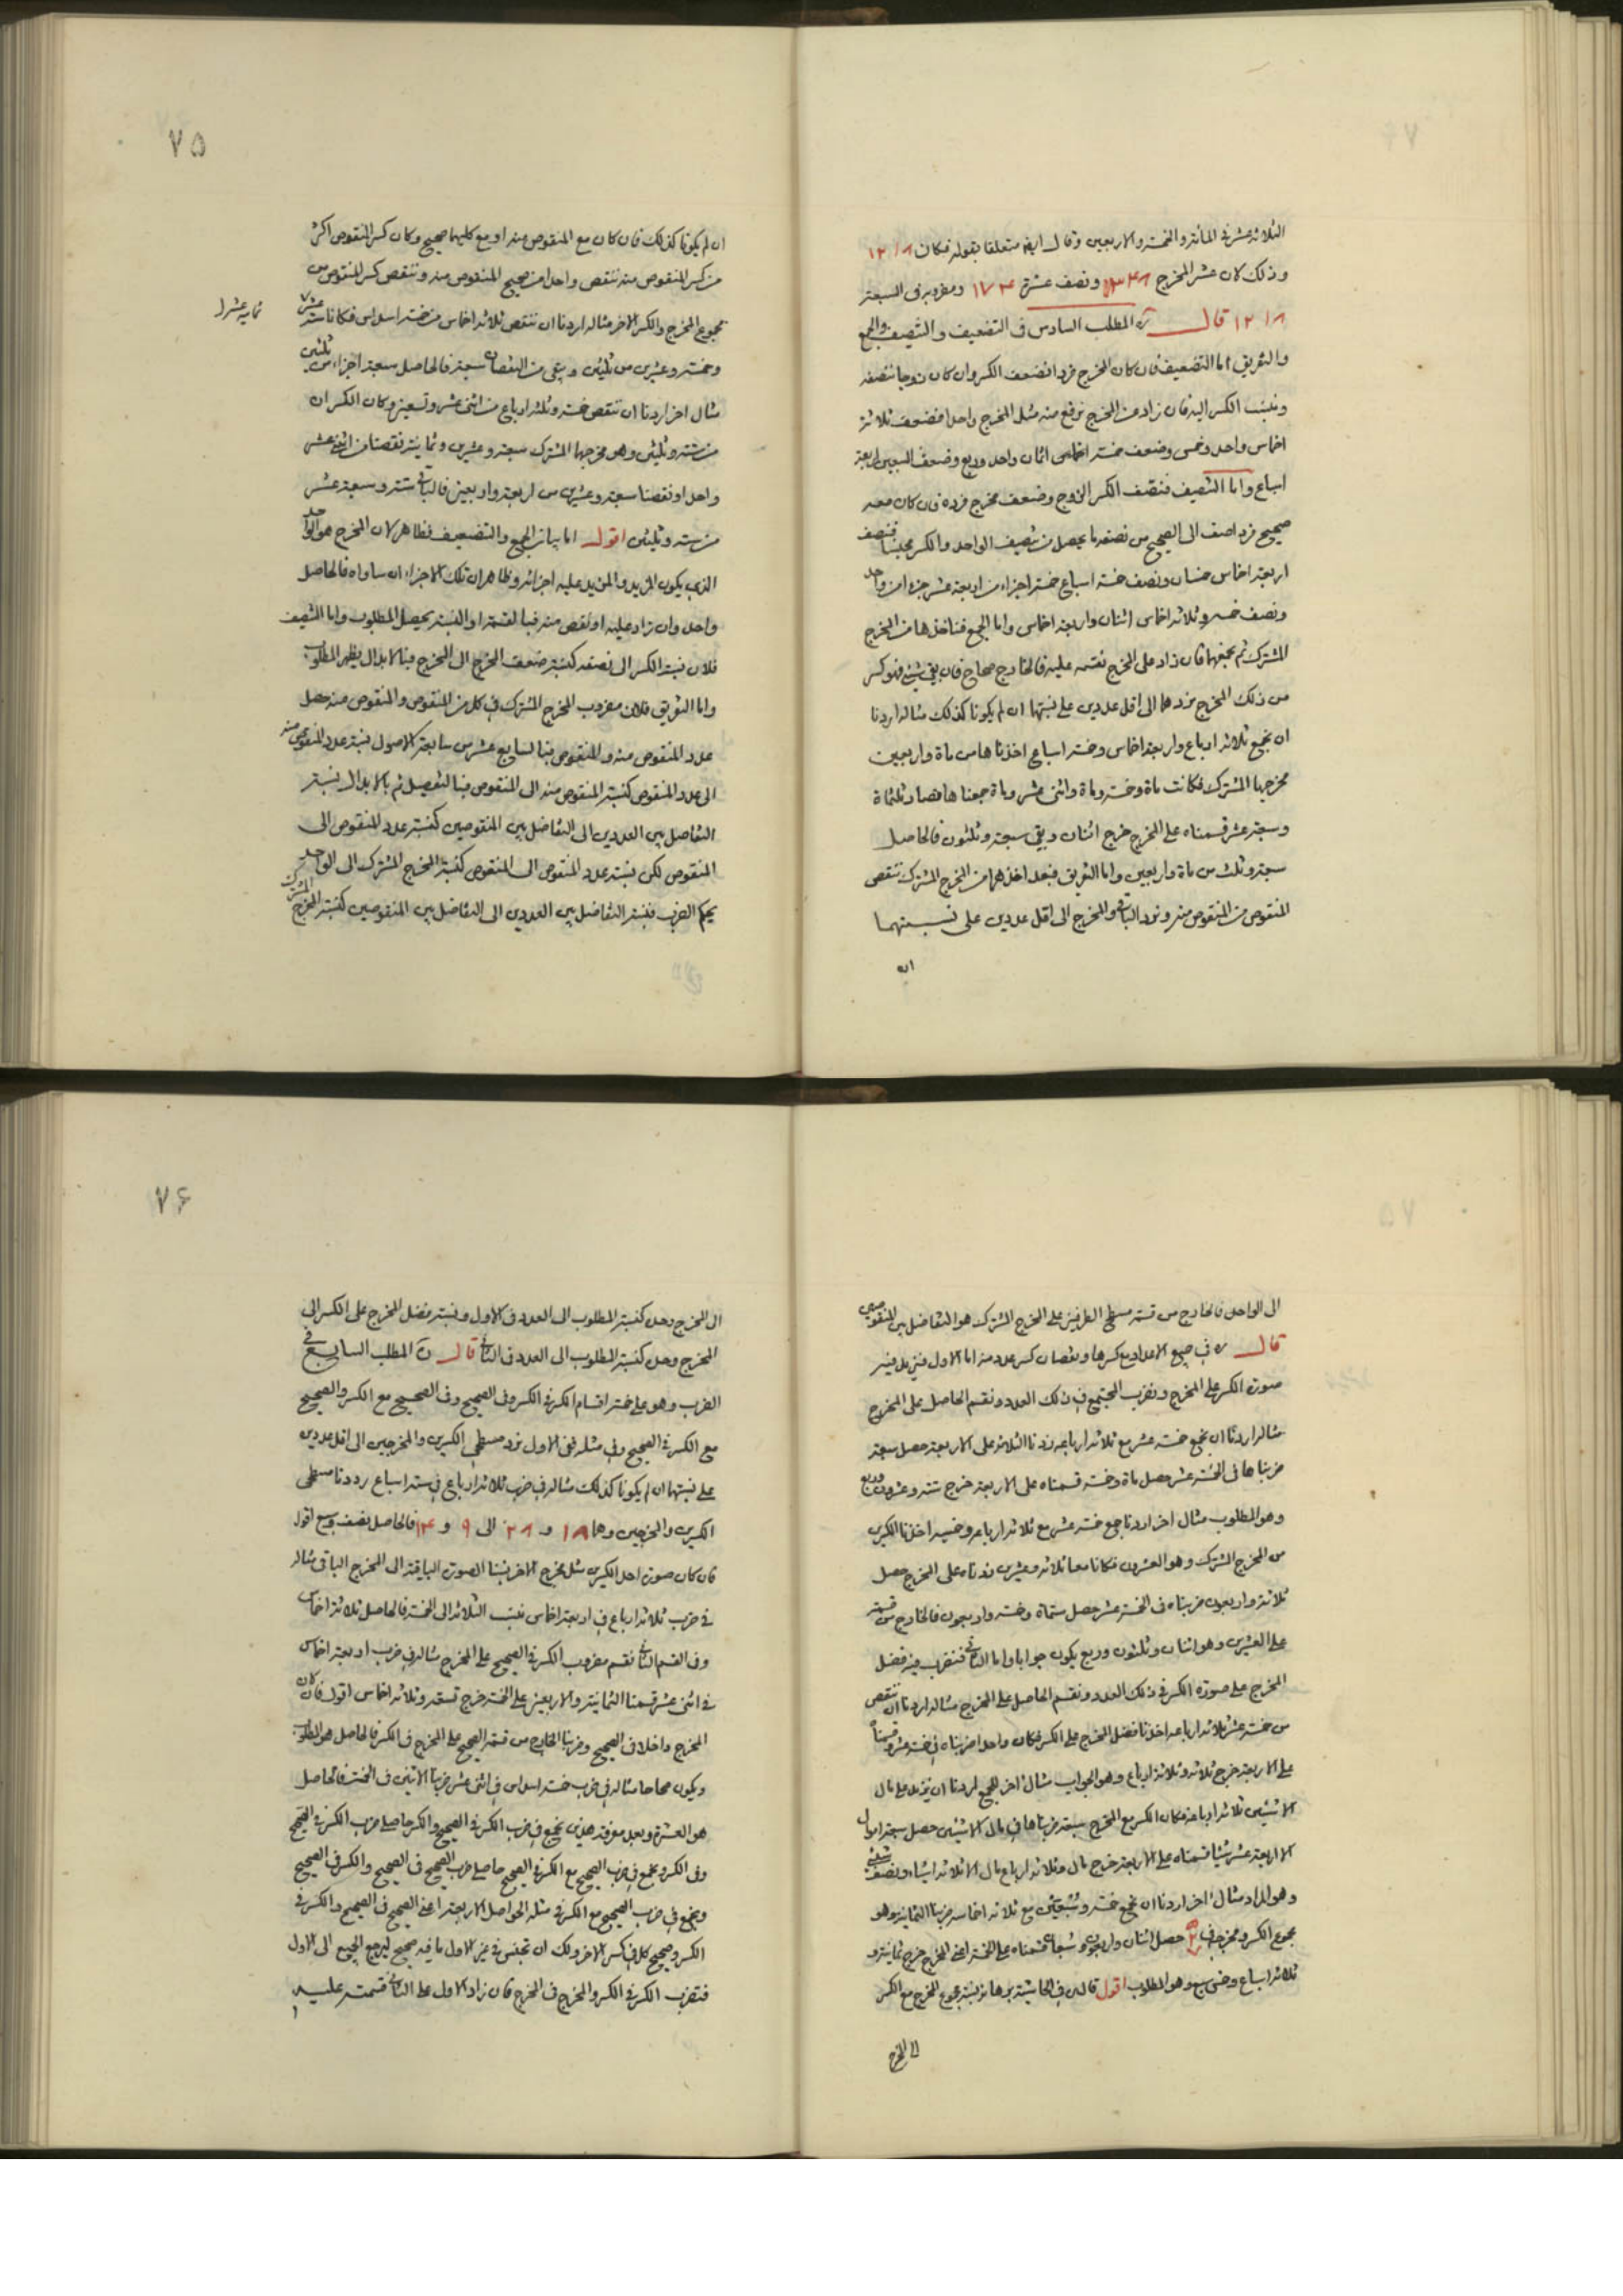 الثلاثة عشر في المأتين والخمسة والاربعين وقال ايضا متعلقا بقوله فكان ١٢١٨
وذلك لان عشر المخرج ونصف عشرة ومضروبه في السبعة
١٢١٨ قال المطلب السادس في التضعيف والتنصيف والجمع
والتفريق اما التضعيف فان كان المخرج فردا فنضعف الكسر وان كان زوجا ننصفه
وننسب الكسر اليه فان زاد عن المخرج نرفع منه مثل المخرج واحدا فضعف ثلاثة
اخماس واحد وخمس وضعف خمسة اثمان واحد وربع وضعف السبعين اربعة
اسباع واما التنصيف فننصف الكسر الزوج ونضعف مخرج فرده فان كان معه
صحيح فرد اضف الى الصحيح من نصفه ما يحصل من تنصيف الواحد والكسر مجنسا فنصف
اربعة اخماس خمسان ونصف خمسة اسباع خمسة اجزاء من اربعة عشر جزءا من واحد
ونصف خمسة وثلاثة اخماس اثنان واربعة اخماس واما الجمع فناخذها من المخرج
المشترك ثم نجمعها فان زاد على المخرج نقسمه عليه فالخارج صحاح فان بقي شيء فهو كسر
من ذلك المخرج نردهما الى اقل عددين على نسبتهما ان لم يكونا كذلك مثاله اردنا
ان نجمع ثلاثة ارباع واربعة اخماس وخمسة اسباع اخذناها من ماة واربعين
مخرجها المشترك فكانت ماة وخمسة وماة واثنى عشر وماة جمعناها فصار ثلثماة
وسبعة عشر قسمناه على المخرج خرج اثنان وبقي سبعة وثلثون فالحاصل
سبعة وثلثين من ماة واربعين واما التفريق فبعد اخذهما من المخرج المشترك ننقص
المنقوص من المنقوص منه ونرد الباقي والمخرج الى اقل عددين على نسبتهما
ان
٧٥
ان لم يكونا كذلك فان كان مع المنقوص منه او مع كليهما صحيح وكان كسر المنقوص اكثر
من كسر المنقوص منه ننقص واحدا من صحيح المنقوص منه وننقص كسر المنقوص من
مجموع المخرج والكسر الاخر مثاله اردنا ان ننقص ثلاثة اخماس من خمسة اسداس فكانا ثمانية عشر
وخمسة وعشرين من ثلثين وبقي من النقصان سبعة فالحاصل سبعة اجزاء من ثلثين
مثال اخر اردنا ان ننقص خمسة وثلثة ارباع من اثنى عشر وتسعين وكان الكسران
من ستة وثلثين وهو مخرجهما المشترك سبعة وعشرين وثمانية نقصنا من اثنى عشر
واحدا ونقصنا سبعة وعشرين من اربعة واربعين فالباقي ستة وسبعة عشر
من ستة وثلثين اقول اما بيان الجمع والتضعيف فظاهر لان المخرج هو الواحد
الذي يكون المزيد والمزيد عليه اجزائه وظاهر ان تلك الاجزاء ان ساواه فالحاصل
واحد وان زاد عليه او نقص منه فبالقسمة او النسبة يحصل المطلوب واما التنصيف
فلان نسبة الكسر الى نصفه كنسبة ضعف المخرج الى المخرج فبالابدال يظهر المطلوب
واما التفريق فلان مضروب المخرج المشترك في كل من المنقوص والمنقوص منه حصل
عدد المنقوص منه والمنقوص فبالسابع عشر من سابعة الاصول نسبة عدد المنقوص منه
الى عدد المنقوص كنسبة المنقوص منه الى المنقوص فبالتفصيل ثم بالابدال نسبة
التفاضل بين العددين الى التفاضل بين المنقوصين كنسبة عدد المنقوص الى
المنقوص لكن نسبة عدد المنقوص الى المنقوص كنسبة المخرج المشترك الى الواحد
بحكم الضرب فنسبة التفاضل بين العددين الى التفاضل بين المنقوصين كنسبة المخرج المشترك
الى الواحد فالخارج من قسمة مسطح الطرفين على المخرج المشترك هو التفاضل بين المنقوصين
قال في جمع الاعداد مع كسرها ونقصان كسر عدد منه اما الاول فنزيد فيه
صورة الكسر على المخرج ونضرب المجتمع في ذلك العدد ونقسم الحاصل على المخرج
مثاله اردنا ان نجمع خمسة عشر مع ثلاثة ارباعه زدنا الثلاثة على الاربعة حصل سبعة
ضربناها في الخمسة عشر حصل ماة وخمسة قسمناه على الاربعة خرج ستة وعشرون وربع
وهو المطلوب مثال اخر اردنا جمع خمسة عشر مع ثلاثة ارباعه وخمسيه اخذنا الكسرين
من المخرج المشترك وهو العشرون فكانا معا ثلاثة وعشرين زدناه على المخرج حصل
ثلاثة واربعون ضربناه في الخمسة عشر حصل ستماة وخمسة واربعون فالخارج من قسمته
على العشرين وهو اثنان وثلثون وربع يكون جوابا واما الثاني فنضرب فيه فضل
المخرج على صورة الكسر في ذلك العدد ونقسم الحاصل على المخرج مثاله اردنا ان ننقص
من خمسة عشر ثلاثة ارباعه اخذنا فضل المخرج على الكسر فكان واحدا ضربناه في خمسة عشر وقسمناه
على الاربعة خرج ثلاثة وثلاثة ارباع وهو الجواب مثال اخر للجمع اردنا ان نزيد على مال
الا شيئين ثلاثة ارباعه فكان الكسر مع المخرج سبعة ضربناها في مال الا شيئين حصل سبعة اموال
الا اربعة عشر شيئا قسمناه على الاربعة خرج مال وثلاثة ارباع مال الا ثلاثة اشياء ونصف شيء
وهو المراد مثال اخر اردنا ان نجمع خمسة وسبعين مع ثلاثة اخماسه ضربنا الثمانية وهو
مجموع الكسر ومخرجه في حصل اثنان واربعون وسبعان قسمناه على الخمسة اعني المخرج خرج ثمانية و
ثلاثة اسباع وخمس سبع وهو المطلوب اقول قال في الحاشية برهانه نسبة مجموع المخرج مع الكسر
الى المخرج
٧۶
الى المخرج وحده كنسبة المطلوب الى العدد في الاول ونسبة فضل المخرج على الكسر الى
المخرج وحده كنسبة المطلوب الى العدد في الثاني قال المطلب السابع في
الضرب وهو على خمسة اقسام الكسر في الكسر وفي الصحيح وفي الصحيح مع الكسر والصحيح
مع الكسر في الصحيح وفي مثله ففي الاول نرد مسطحي الكسرين والمخرجين الى اقل عددين
على نسبتهما ان لم يكونا كذلك مثاله في ضرب ثلاثة ارباع في ستة اسباع رددنا مسطحي
الكسرين والمخرجين وهما ١٨ و ٢٨ الى ٩ و ١۴ فالحاصل نصف وسبع اقول
فان كان صورة احد الكسرين مثل مخرج الاخر نسبنا الصورة الباقية الى المخرج الباقي مثاله
في ضرب ثلاثة ارباع في اربعة اخماس ننسب الثلاثة الى الخمسة فالحاصل ثلاثة اخماس
وفي القسم الثاني نقسم مضروب الكسر في الصحيح على المخرج مثاله في ضرب اربعة اخماس
في اثنى عشر قسمنا الثمانية والاربعين على الخمسة خرج تسعة وثلاثة اخماس اقول فان كان
المخرج داخلا في الصحيح وضربنا الخارج من قسمة الصحيح على المخرج في الكسر فالحاصل هو المطلوب
ويكون صحاحا مثاله في ضرب خمسة اسداس في اثنى عشر ضربنا الاثنين في الخمسة فالحاصل
هو العشرة وبعد معرفة هذين نجمع في ضرب الكسر في الصحيح والكسر حاصلي ضرب الكسر في الصحيح
وفي الكسر ونجمع في ضرب الصحيح مع الكسر في الصحيح حاصلي ضرب الصحيح في الصحيح والكسر في الصحيح
ونجمع في ضرب الصحيح مع الكسر في مثله الحواصل الاربعة اعني الصحيح في الصحيح والكسر في
الكسر وصحيح كل في كسر الاخر ولك ان تجنس في غير الاول ما فيه صحيح ليرجع الجميع الى الاول
فتضرب الكسر في الكسر والمخرج في المخرج فان زاد الاول على الثاني قسمته عليه